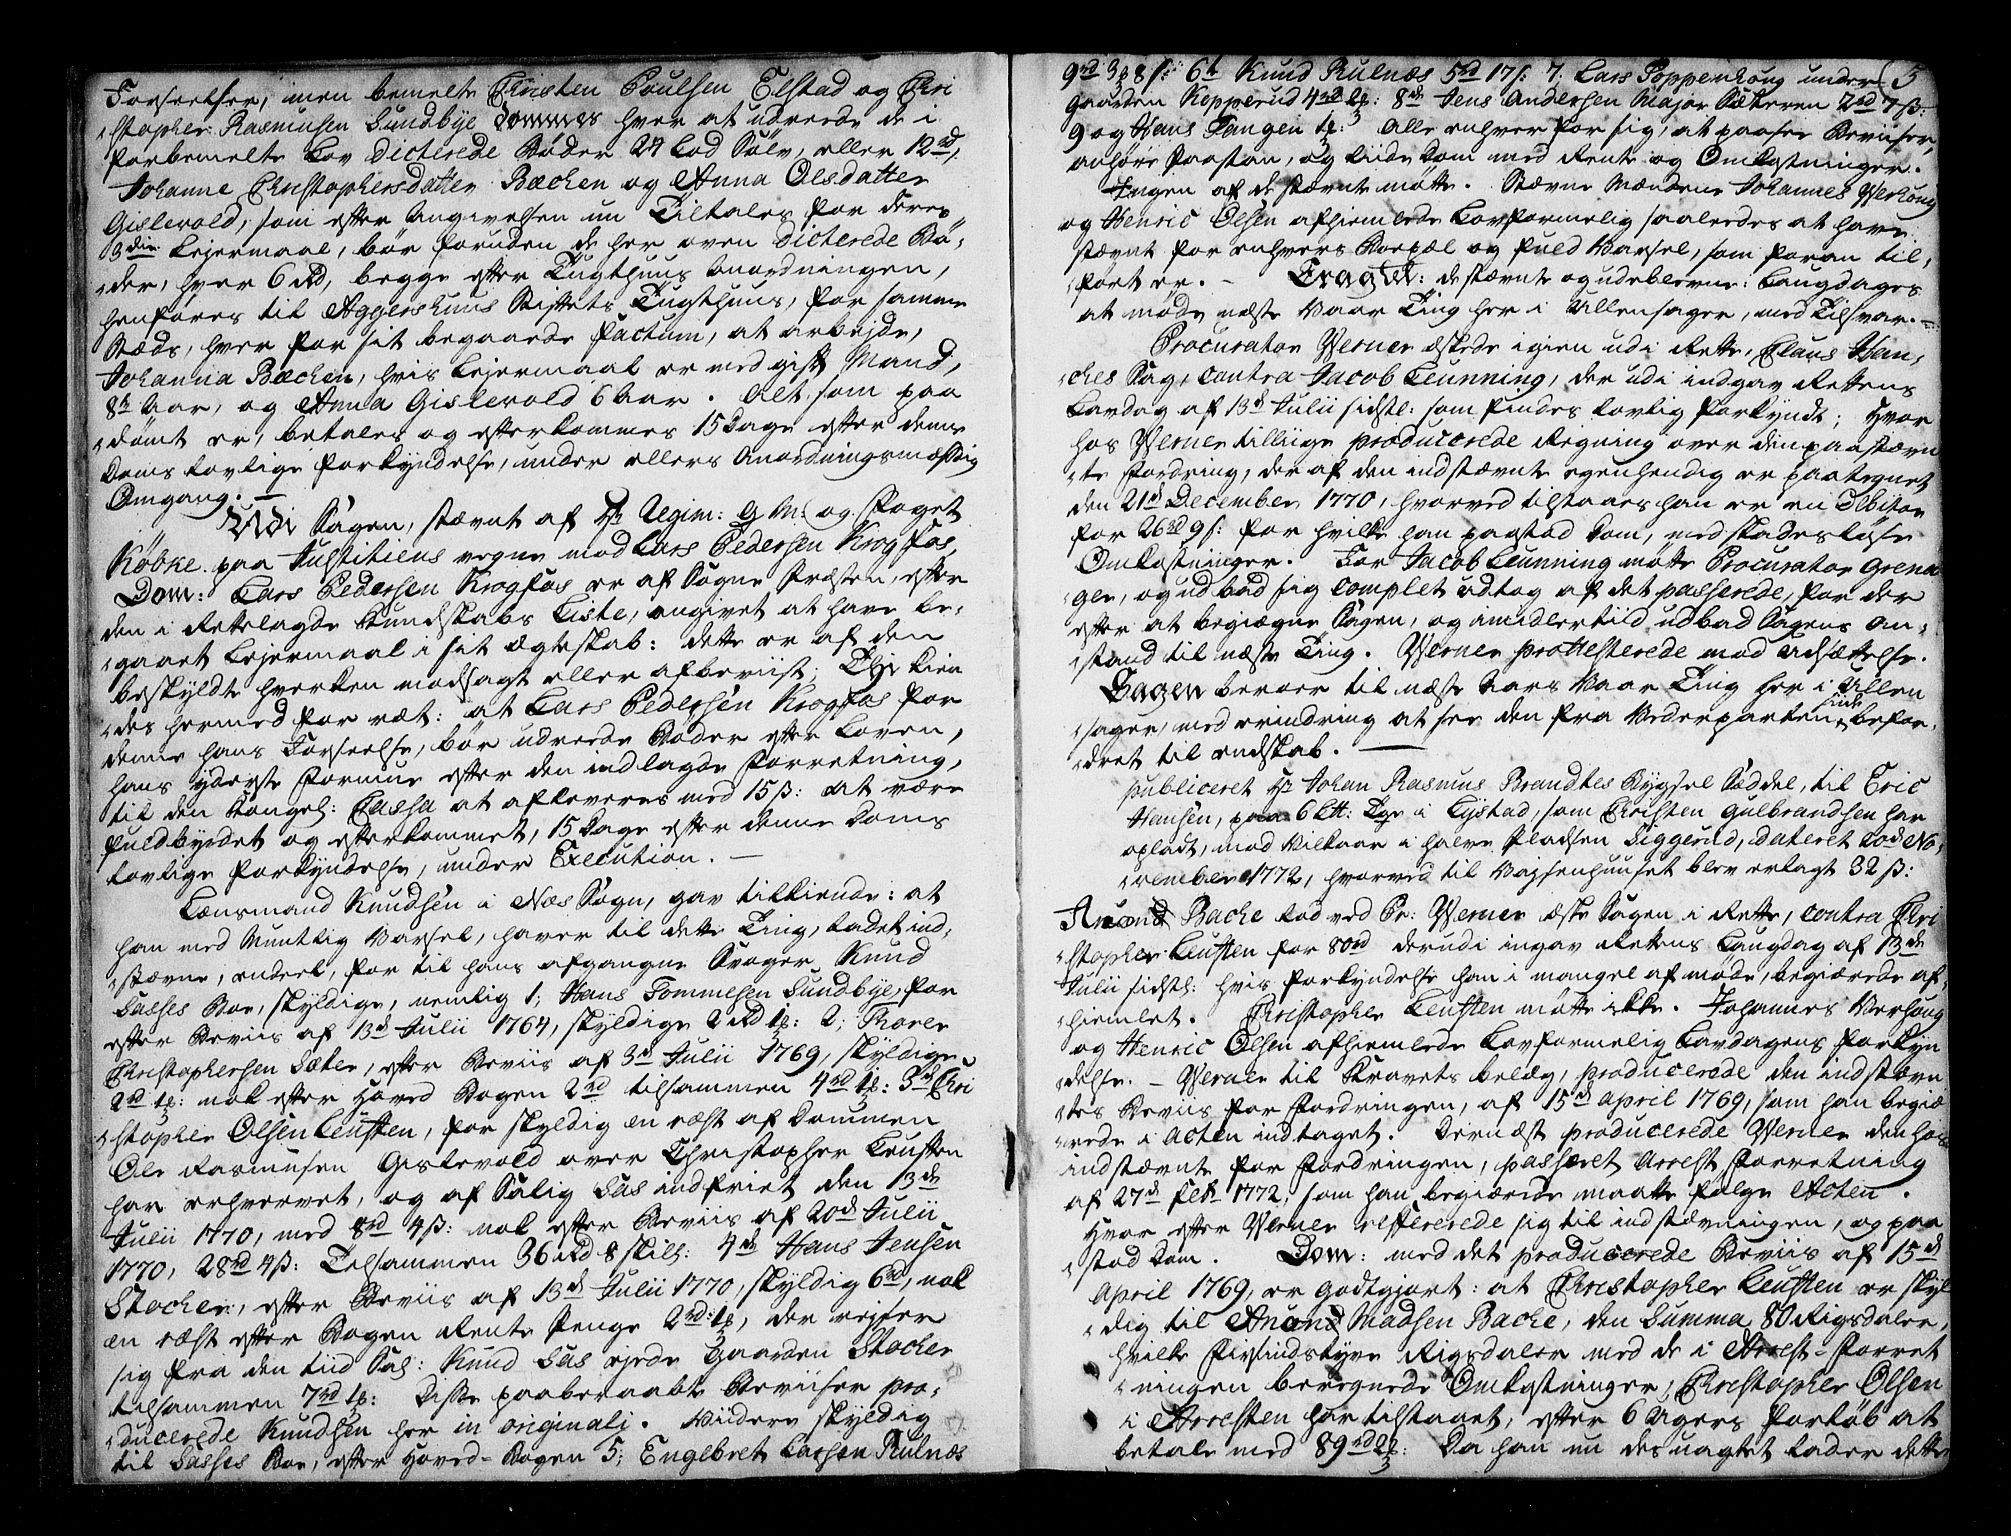 Forseelser, men bemelte Christen Poulsen Elstad og Chri
stopher Rasmusen Sundbÿe dømmes hver at udreede de i
forbemelte Lov dicterede Bøder 24 Lod Sølv, eller 12 rd,
Johanne Christophersdatter Bachen og Anna Olsdatter
Gislevold, som efter Angivelsen nu Tiltales for deres
3die Lejermaal, bør foruden de her oven dicterede Bø-
der, hver 6 Rd, begge efter Tugthuus Anordningen,
henføres til Aggershuus Stiftets Tugthuus, for samme
Stæds, hver for sit begaaede factum, at arbejde,
Johanna Bæchen, hvis Lejermaal er med gift Mand,
8te Aar, og Anna Gislevold 6 Aar. Alt som paa
dømt er, betales og efterkommes 15 Dage efter denne
Doms lovlige forkyndelse, under ellers Anordningsmæssig
Omgang. —
Udi Sagen, stævnt af Hr Regim: Q M: og Foget
Købke paa Justitiens vegne mod Lars Pedersen Krogfos,
Dom: Lars Pedersen Krogfos er af Sogne Præsten, efter
den i Rettelagde Kundskabs Liste, angivet at have be-
gaaet Lejermaal i sit Ægteskab: dette er af den
beskyldte hverken modsagt eller afbeviist; Thi kien
des hermed for ræt: at Lars Pedersen Krogfos for
denne hans Forseelse, bør udreede Bøder efter Loven,
hans yderste Formue efter den indlagde Forretning,
til den Kongel: Cassa at afleveres med 15 ß: at være
fuldbyrdet og efterkommet, 15 Dage efter denne Doms
lovlige forkyndelse, under Execution. —
Lænsmand Knudsen i Næs Sogn, gav tilkiende: at
han med Mundtlig Varsel, haver til dette Ting, ladet ind-
stævne, endeel, for til hans afgangne Svoger Knud
Sasses Boe, skyldige, nemlig 1; Hans Tommesen Sundbÿe, for
efter Beviis af 13de Julii 1764, skyldige 2 Rd 1: 2; Thorer
Christophersen Sæter, efter Beviis af 3de Julii 1769, skyldige
2 rd 1: nok efter Hoved Bogen 2 rd tilsammen 4 rd 1: 3de Chri
stopher Olsen Leusten, for skyldig en ræst af Dommen
Ole Rasmusen Gislevold over Christopher Leusten
har erhvervet, og af Salig Sas indfriet den 13de
Julii 1770, med 8 rd 4 ß: nok efter Beviis af 20de Julii
1770, 28 rd 4 ß: Tilsammen 36 Rd 8 skill: 4de Hans Jensen
Stocher, efter Beviis af 13de Julii 1770, skyldig 6 rd, nok
en ræst efter Bogen Rente Penge 2 rd: 1, der rejser
sig fra den tiid Sal: Knud Sas ejede Gaarden Stocher
tilsammen 7 rd 1: Disse paaberaabte Beviiser pro-
ducerede Knudsen her in originali. Viidere skyldig
til Sasses Boe, efter Hoved-Bogen 5; Engebret Larsen Rulnæs
9 rd 3 8 s: 6te Knud Rulnæs 5 rd 17 s: 7. Lars Poppenhoug under 5
Gaarden Kopperud 4 rd 2: 8de Jens Andersen Major Sæteren 2 rd 7 ß:
9 og Hans Tangen 1: Alle enhver for sig, at paasee Beviiser,
anhøre Paastan, og Liide Dom med Rente og Omkostninger.
Ingen af de stævnte møtte. Stævne Mændene Johannes Werhoug
og Henric Olsen afhiemlede Lovformelig saaledes at have
stævnt for enhvers Boepæl og fuld Varsel, som foran til-
ført er. — Eragtet: de stævnte og udeblevne: Laugdages
at møde næste Vaar Ting her i Ullensager, med Tilsvar. —
Procurator Werner æskede igien udi Rette, Claus Han-
ches Sag, contra Jacob Leunning, der udi indgav Rettens
Lavdag af 13de Julii sidstl: som findes lovlig forkyndt; Hvor
hos Werner tilliige producerede Regning over den paastævn
te Fordring, der af den indstævnte egenhendig er paategnet
den 21de December 1770, hvorved tilstaaes han er en Debitor
for 26 rd 9 s: for hvilke han paastod Dom, med skadesløse
Omkostninger. For Jacob Leunning møtte Procurator Grena
ger, og udbad sig complet udtog af det passerede, for der
efter at begiægne Sagen, og imidlertiid udbad Sagens An-
stand til næste Ting. Werner prottesterede mod udsættelse.
Sagen beroer til næste Aars Vaar Ting her i Ullen
sager, med erindring at see den fra Vederparten sine befor-
dret til endskab. —
publiceret Hr Johan Rasmus Brandtes Bÿgsel Seddel, til Eric
Hansen, paa 6 Lt: Tge i Lystad, som Christen Gulbrandsen har
opladt, mod vilkaar i halve Pladsen Siggerud, dateret 20de No-
vember 1772, hvorved til Vajsenhuuset blev erlagt 32 ß:
Anond Bache lod ved Pr: Werner æske Sagen i Rette, contra Chri
stopher Leusten for 80 rd derudi ingav Rettens Laugdag af 13de
Julii sidstl: hvis forkyndelse han i mangel af møde, begiærede af-
hiemlet. Christopher Leusten møtte ikke. Johannes Werhoug
og Henric Olsen afhiemlede Lovformelig Lavdagens forkyn
delse. — Werner til Kravets belæg, producerede den indstævn
tes Beviis for Fordringen, af 15de April 1769, som han begiæ
rede i acten indtaget. Dernæst producerede Werner den hos
indstævnte for Fordringen, passeret Arrest Forretning
af 27de Feb: 1772, som han begiærede maatte følge Acten.
Hvor efter Werner refererede sig til indstævningen, og paa
stod Dom. Dom: med det producerede Beviis af 15de
April 1769, er godtgjort: at Christopher Leusten er skyl
dig til Anond Madsen Bache, den Summa 80 Rigsdaler,
hvilke Firsindstyve Rigsdaler med de i Arrest-Forret
ningen beregnede Omkostninger, Christopher Olsen
i Arresten har tilstaaet, efter 6 Ugers forløb at
betale med 89 rd 2: Da han nu des uagtet lader dette